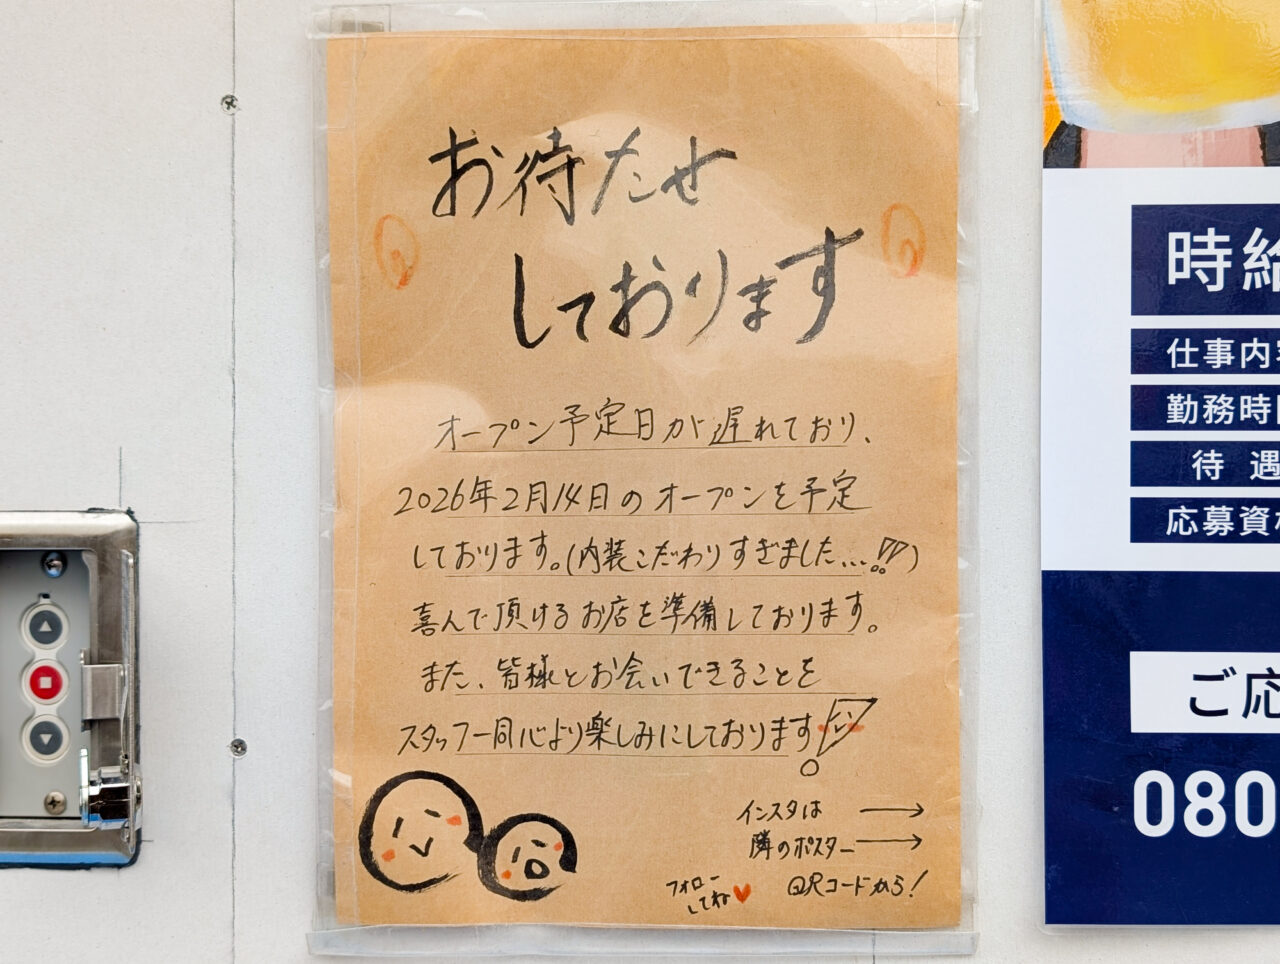 お待たせ
しております
オープン予定日が遅れており、
2026年2月14日のオープンを予定
しております。(内装こだわりすぎました...!!)
喜んで頂けるお店を準備しております。
また、皆様とお会いできることを
スタッフ一同心より楽しみにしております!
インスタは →
隣のポスター →
QRコードから!
フォロー
してね♥
時給
仕事内容
勤務時間
待遇
応募資格
ご応
080